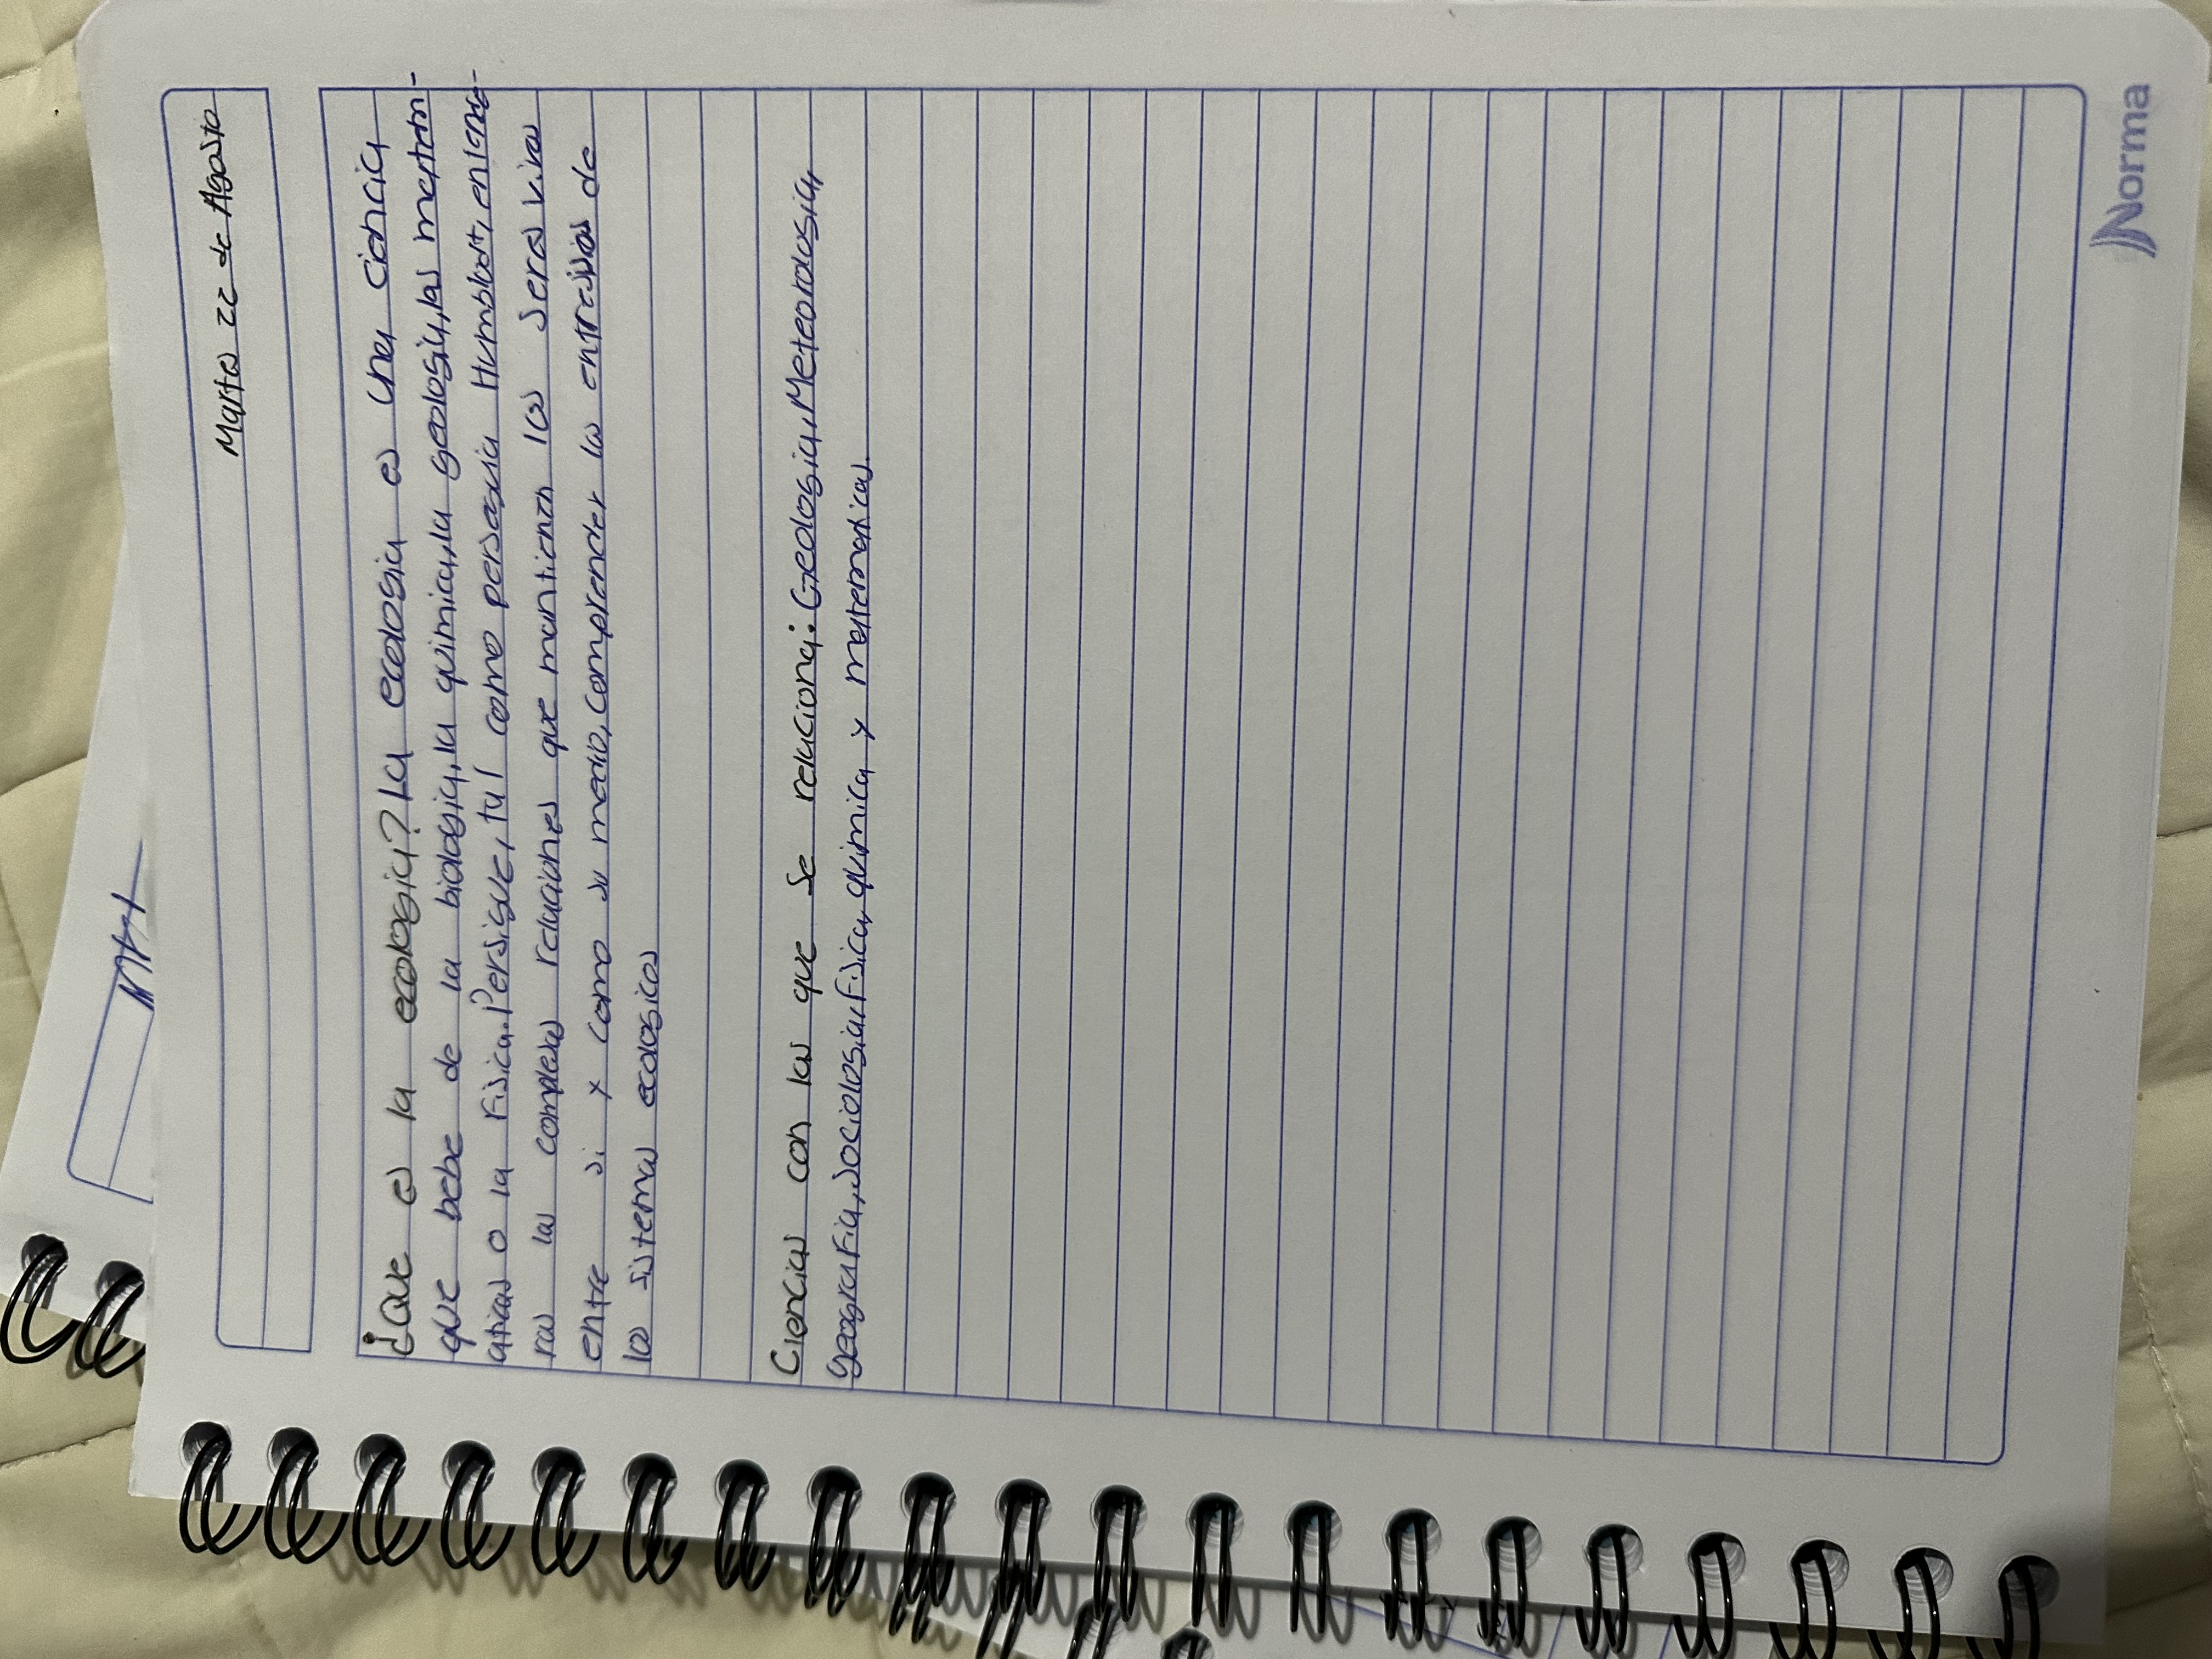 Martes 22 de Agosto
¿Que es la ecologia? La ecologia es una ciencia
que bebe de la biologia, la quimica, la geologia, las matem-
aticas o la Fisica. Persigue, tal como perseguia Humsblodt, entende-
ras las complejas relaciones que mantienen los seres vivos
entre si y como su medio, comprender los entresijos de
los sistemas ecologicos
Ciencias con las que se relaciona: Geologia, Meteorologia,
geografia, sociologia, Fisica, quimica y matematicas.
Norma